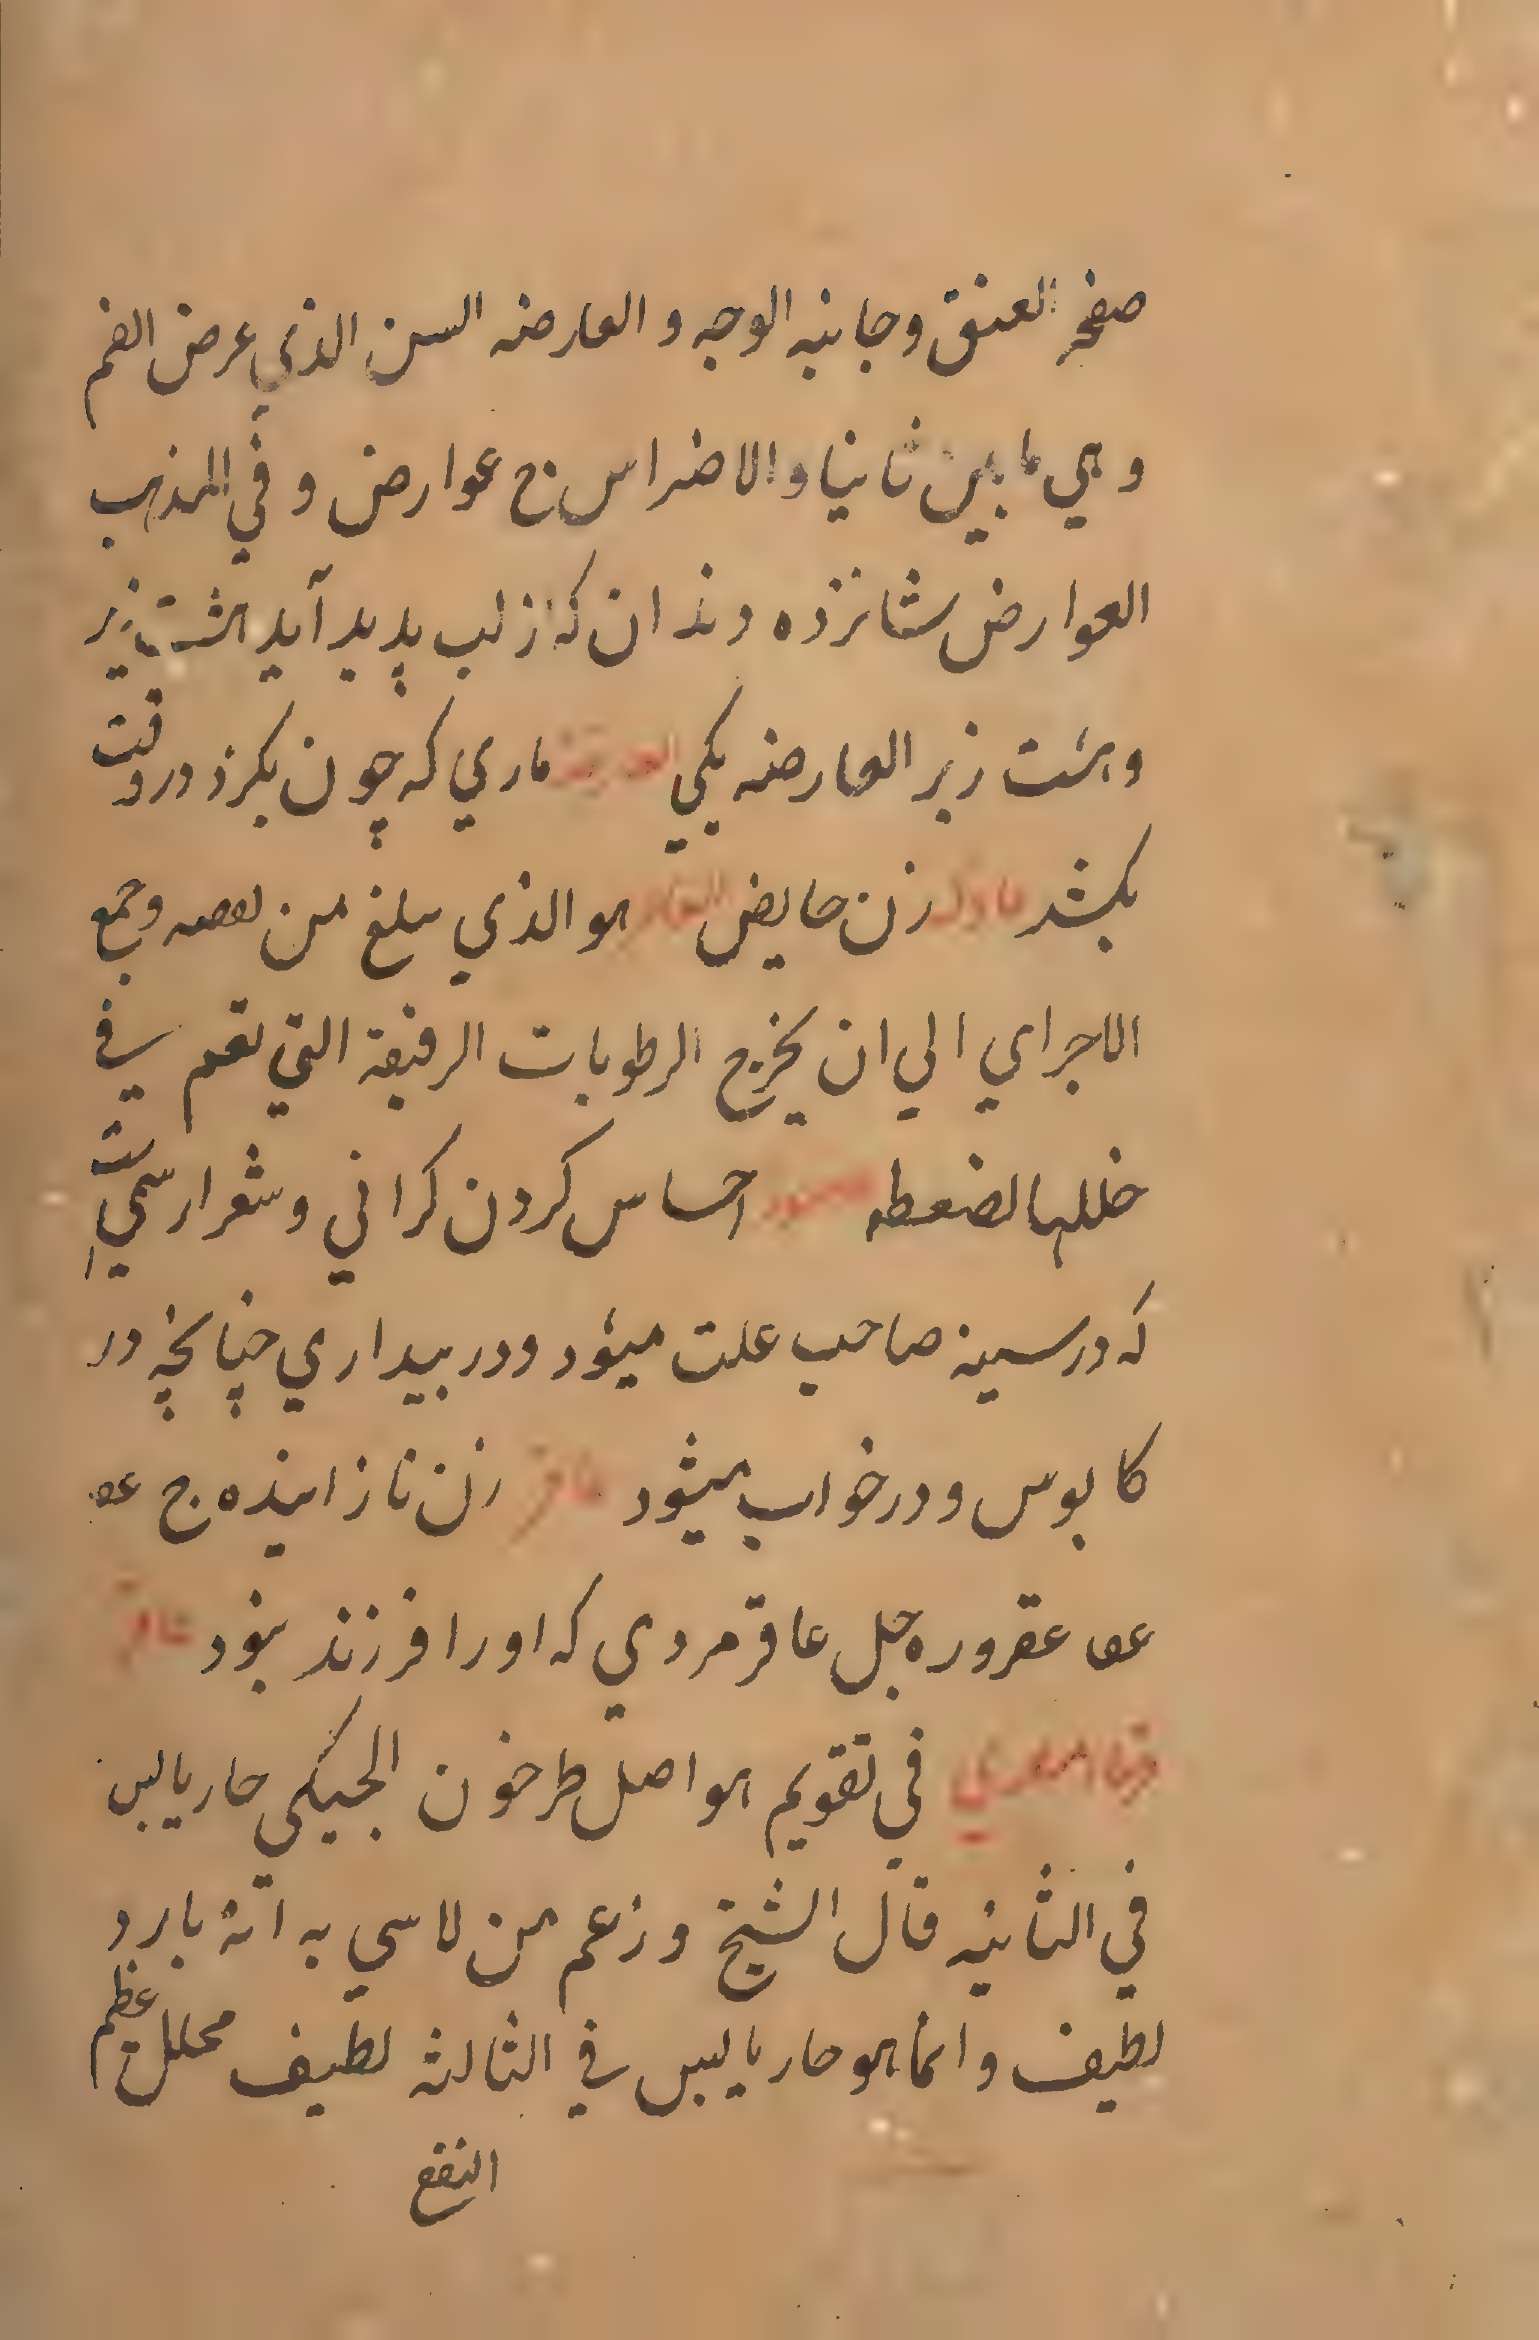 صفحة العنق وجانبه الوجه و العارضه السن الذي عرض الفم
وهي ما بين ثنايا والاضراس ج عوارض و في المذهب
العوارض شانزده دندان که از لب پدید آید هشت زیر
وهشت زبر العارضه یکی ماري که چون بکزد در وقت
بکشد عارك زن حایض هو الذي من وجمع
الاجزاي الي ان يخرج الرطوبات الرقيقة التي في
خللها لضغطه احساس کردن کراني و شعرار سمي است
که در سینه صاحب علت میشود ودر بیداري چنانچه در
کابوس و در خواب میشود عاقر زن نازاینده ج عو
عوا عقروره جل عاقر مردي که اورا فرزند نبود عاقر
قرحا في تقويم هو اصل طرخون الجبلی حار یابس
في الثانيه قال الشيخ و زعم من لاسي به انه بارد
لطيف و انما هو حار يابس في الثالثه لطيف محلل عظم
النفع